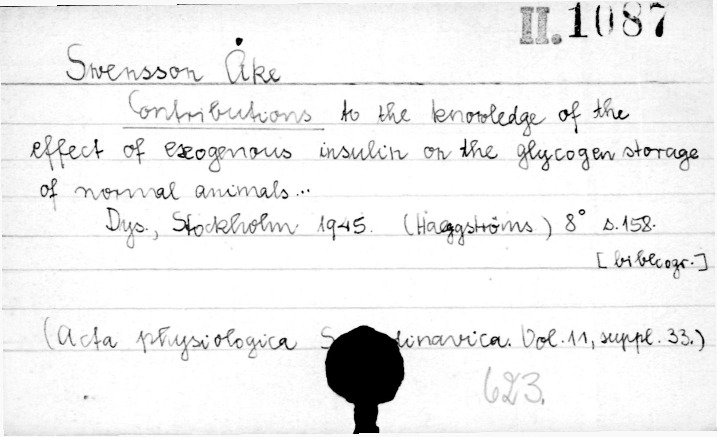 II. 1087
Swensson Åke
Contributions to the knowledge of the
effect of exogenous insulin on the glycogen storage
of normal animals...
Dys., Stockholm 1945. (Haeggströms) 8° s. 158.
[bibliogr.]
(Acta physiologica S dinavica. Vol. 11, suppl. 33.)
623.